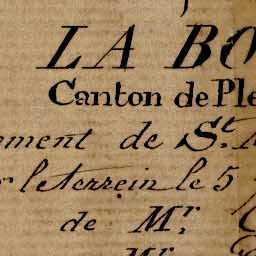 LA BO
Canton de Ple
ement de St.
r le terrein le 5
de Mr.
Mr.